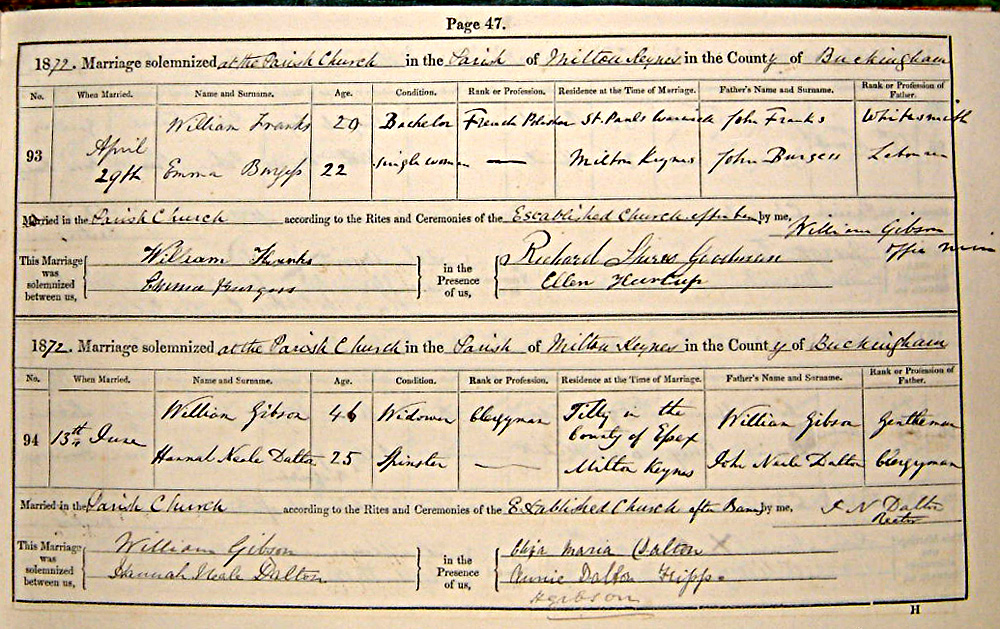 Page 47.
1872. Marriage solemnized at the Parish Church in the Parish of Milton Keynes in the County of Buckingham
No. When Married. Name and Surname. Age. Condition. Rank or Profession. Residence at the Time of Marriage. Father's Name and Surname. Rank or Profession of Father.
William Franks 29 Bachelor French Polisher St. Pauls Warwick John Franks Whitesmith
93 April 29th
Emma Burgess 22 single woman — Milton Keynes John Burgess Laborer
Married in the Parish Church according to the Rites and Ceremonies of the Established Church after by me,
William Gibson
This Marriage was solemnized between us,
William Franks
Emma Burgess
in the Presence of us,
Richard Goodman
Ellen
1872. Marriage solemnized at the Parish Church in the Parish of Milton Keynes in the County of Buckingham
No. When Married. Name and Surname. Age. Condition. Rank or Profession. Residence at the Time of Marriage. Father's Name and Surname. Rank or Profession of Father.
William Gibson 46 Widower Clergyman Tilty in the County of Essex William Gibson Gentleman
94 13th June
Hannah Neale Dalton 25 Spinster — Milton Keynes John Neale Dalton Clergyman
Married in the Parish Church according to the Rites and Ceremonies of the Established Church after Banns by me, J N Dalton
Rector
This Marriage was solemnized between us,
William Gibson
Hannah Neale Dalton
in the Presence of us,
Eliza Maria Dalton X
Annie Dalton Hipps
H Gibson
H